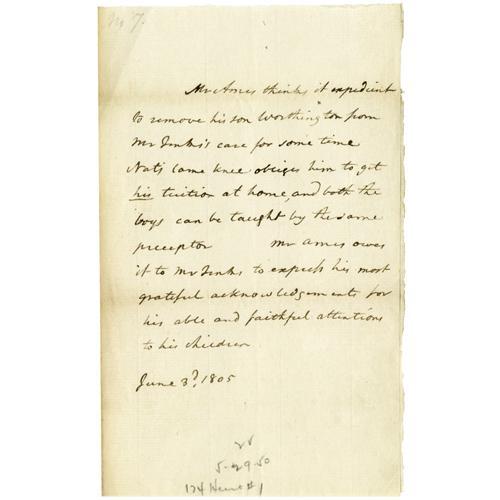 No 7.
Mr Ames thinks it expedient
to remove his son Worthington from
Mr Jenks's care for some time
Nat's lame knee obliges him to get
his tuition at home, and both the
boys can be taught by the same
preceptor Mr Ames owes
it to Mr Jenks to express his most
grateful acknowledgements for
his able and faithful attentions
to his children
June 3d, 1805
5-29-50
174 #1